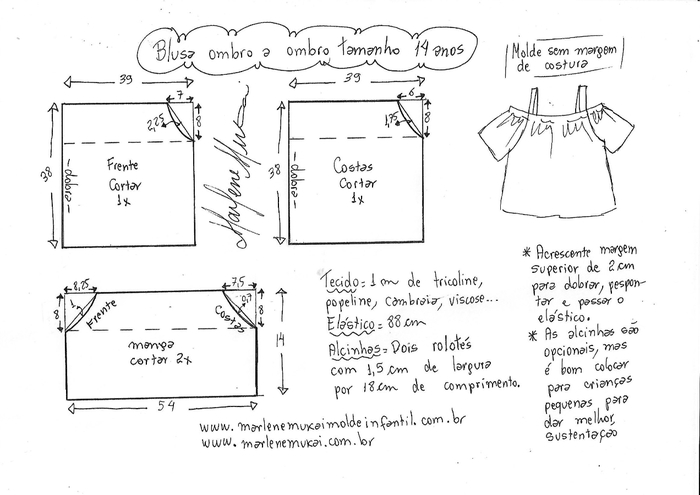 Blusa ombro a ombro tamanho 14 anos
Molde sem margem
de costura
39
7
8
2,25
38
dobra
Frente
Cortar
1x
Marlene Mukai
39
6
8
1,75
38
dobra
Costas
Cortar
1x
8,25
8
1
Frente
7,5
0,7
8
Costas
manga
cortar 2x
14
54
Tecido = 1 m de tricoline,
popeline, cambraia, viscose...
Elástico = 88 cm
Alcinhas = Dois rolotês
com 1,5 cm de largura
por 18 cm de comprimento.
* Acrescente margem
superior de 2 cm
para dobrar, pespon-
tar e passar o
elástico.
* As alcinhas são
opcionais, mas
é bom colocar
para crianças
pequenas para
dar melhor
sustentação
www.marlenemukaimoldeinfantil.com.br
www.marlenemukai.com.br